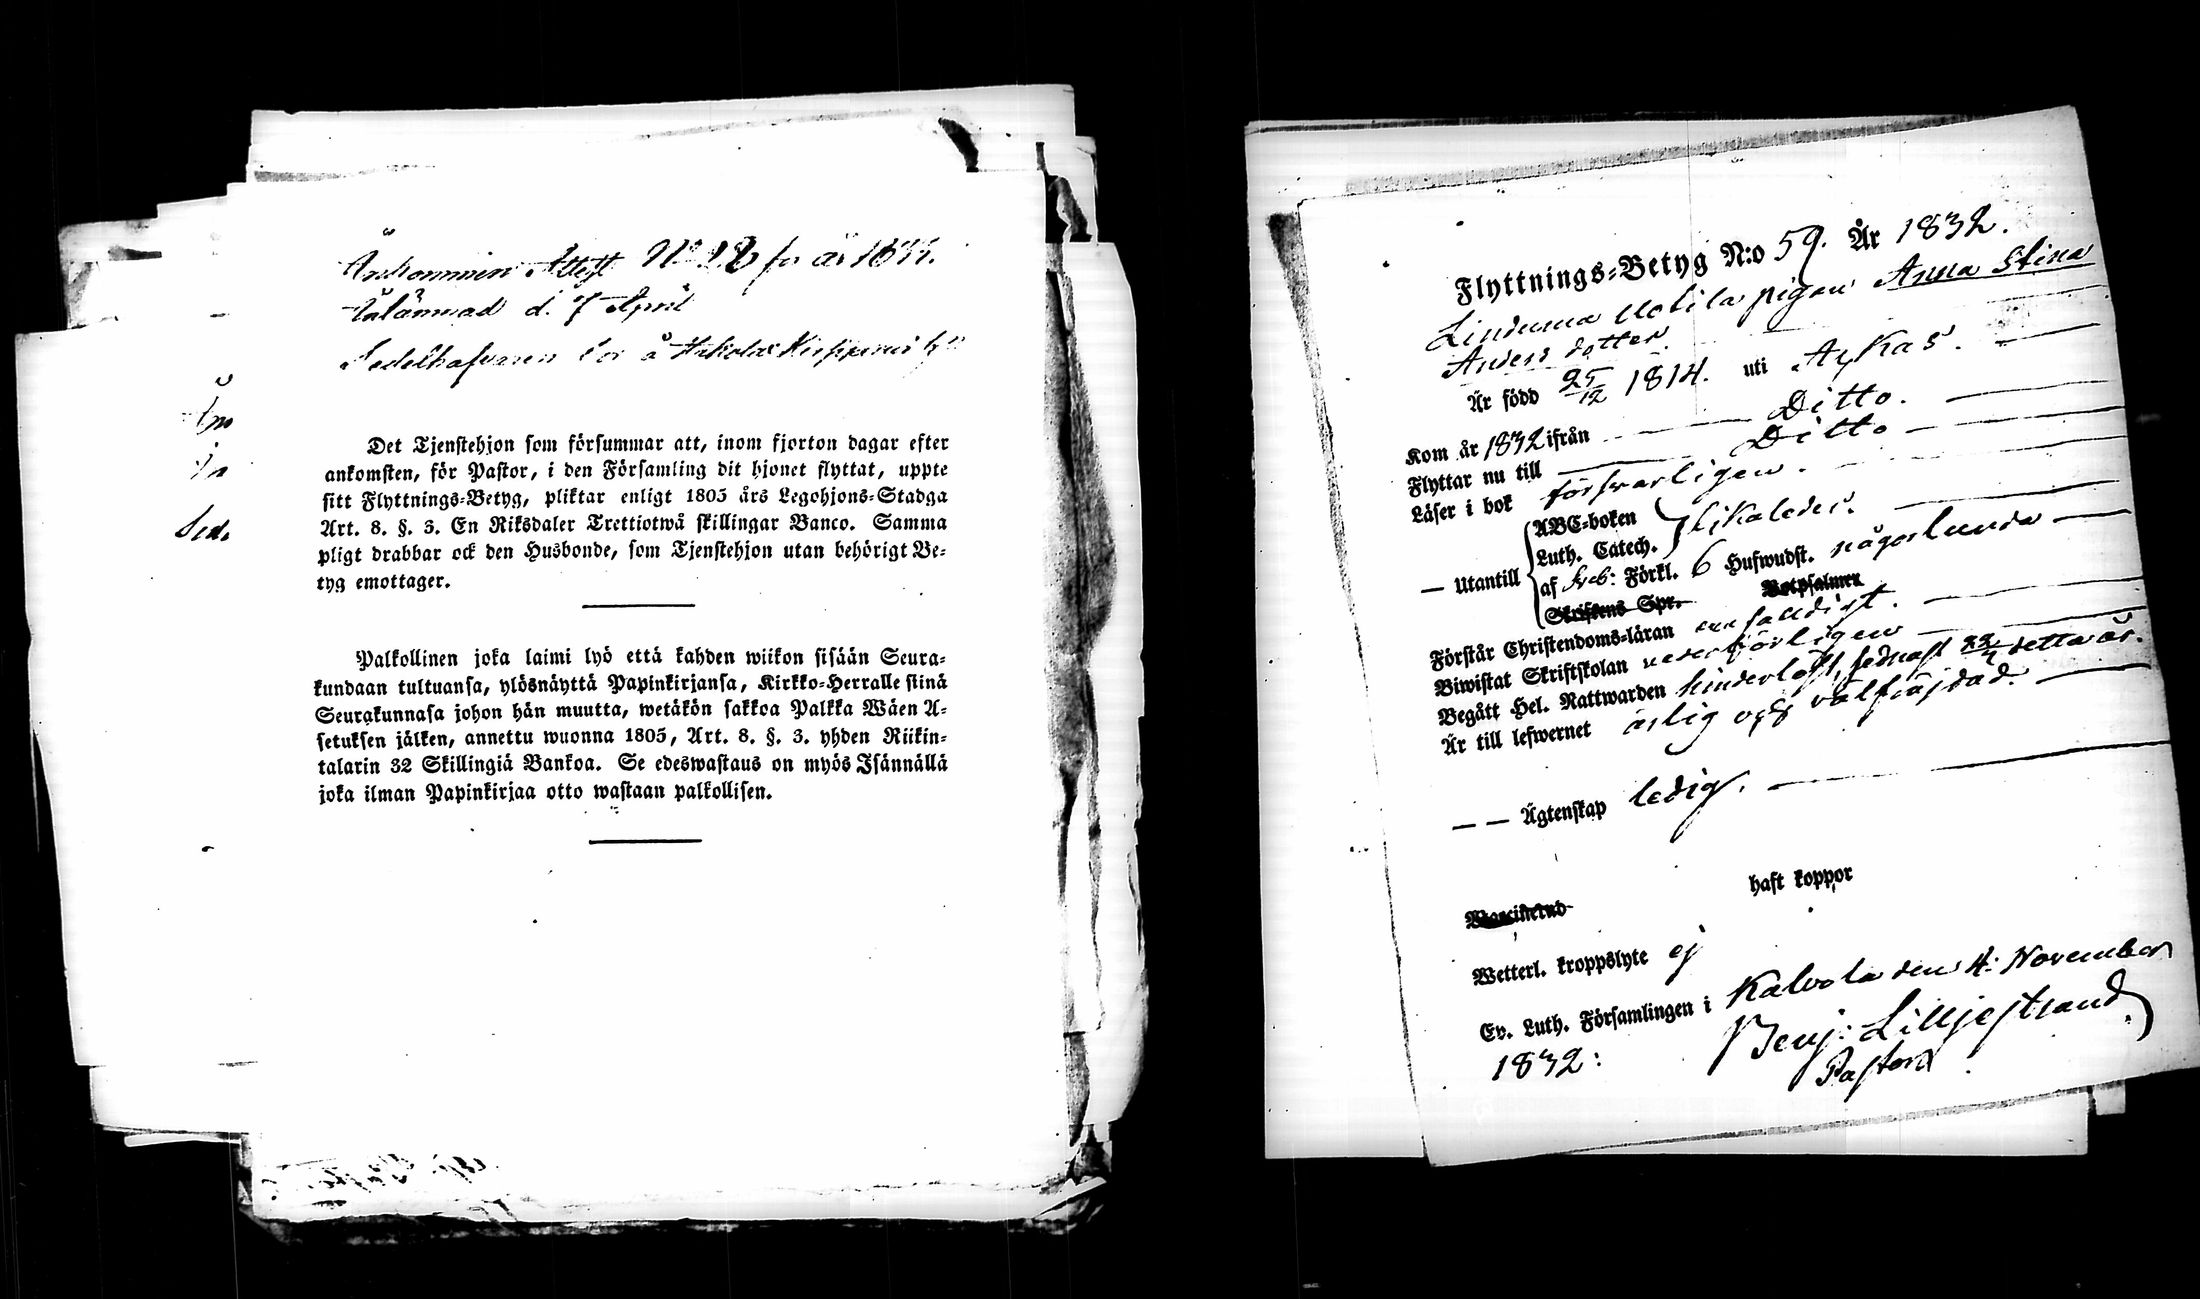 Ankommen Attest No 28 for år 1833.
Inlämnad d. 7 April
Sedelhafvaren bor å Hakola
Det Tjenstehjon som försummar att, inom fjorton dagar efter
ankomsten, för Pastor, i den Församling dit hjonet flyttat, uppte
sitt Flyttnings-Betyg, pliktar enligt 1805 års Legohjons-Stadga
Art. 8. §. 3. En Riksdaler Trettiotwå skillingar Banco. Samma
pligt drabbar ock den Husbonde, som Tjenstehjon utan behörigt Be-
tyg emottager.
Palkollinen joka laimi lyö että kahden wiikon sisään Seura-
kundaan tultuansa, ylösnäyttä Papinkirjansa, Kirkko-Herralle siinä
Seurakunnasa johon hän muutta, wetäkön sakkoa Palkka Wäen A-
setuksen jälken, annettu wuonna 1805, Art. 8. §. 3. yhden Riikin-
talarin 32 Skillingiä Bankoa. Se edeswastaus on myös Isännällä
joka ilman Papinkirjaa otto wastaan palkollisen.
Sed.
Flyttnings-Betyg N:o 59. År 1832.
Lindema Uotila pigan Anna Stina
Anders dotter.
Är född 25/12 1814. uti Aykas.
Kom år 1832 ifrån Ditto.
Flyttar nu till Ditto
Läser i bok försvarligen.
— Utantill
ABC-boken
Luth. Catech. likaledes.
af Sveb: Förkl. 6 Hufwudst. någorlunda
Skriftens Spr. Botpsalmer
Förstår Christendoms-läran enfaldigt.
Biwistat Skriftskolan vederbörligen
Begått Hel. Nattwarden hinderlöst, sednast detta år.
Är till lefwernet ärlig och välfräjdad.
— — Ägtenskap ledig.
Waccinerad haft koppor
Wetterl. kroppslyte ej
Ev. Luth. Församlingen i Kalvola den 4: November
1832: Benj: Lilljestrand
Pastor